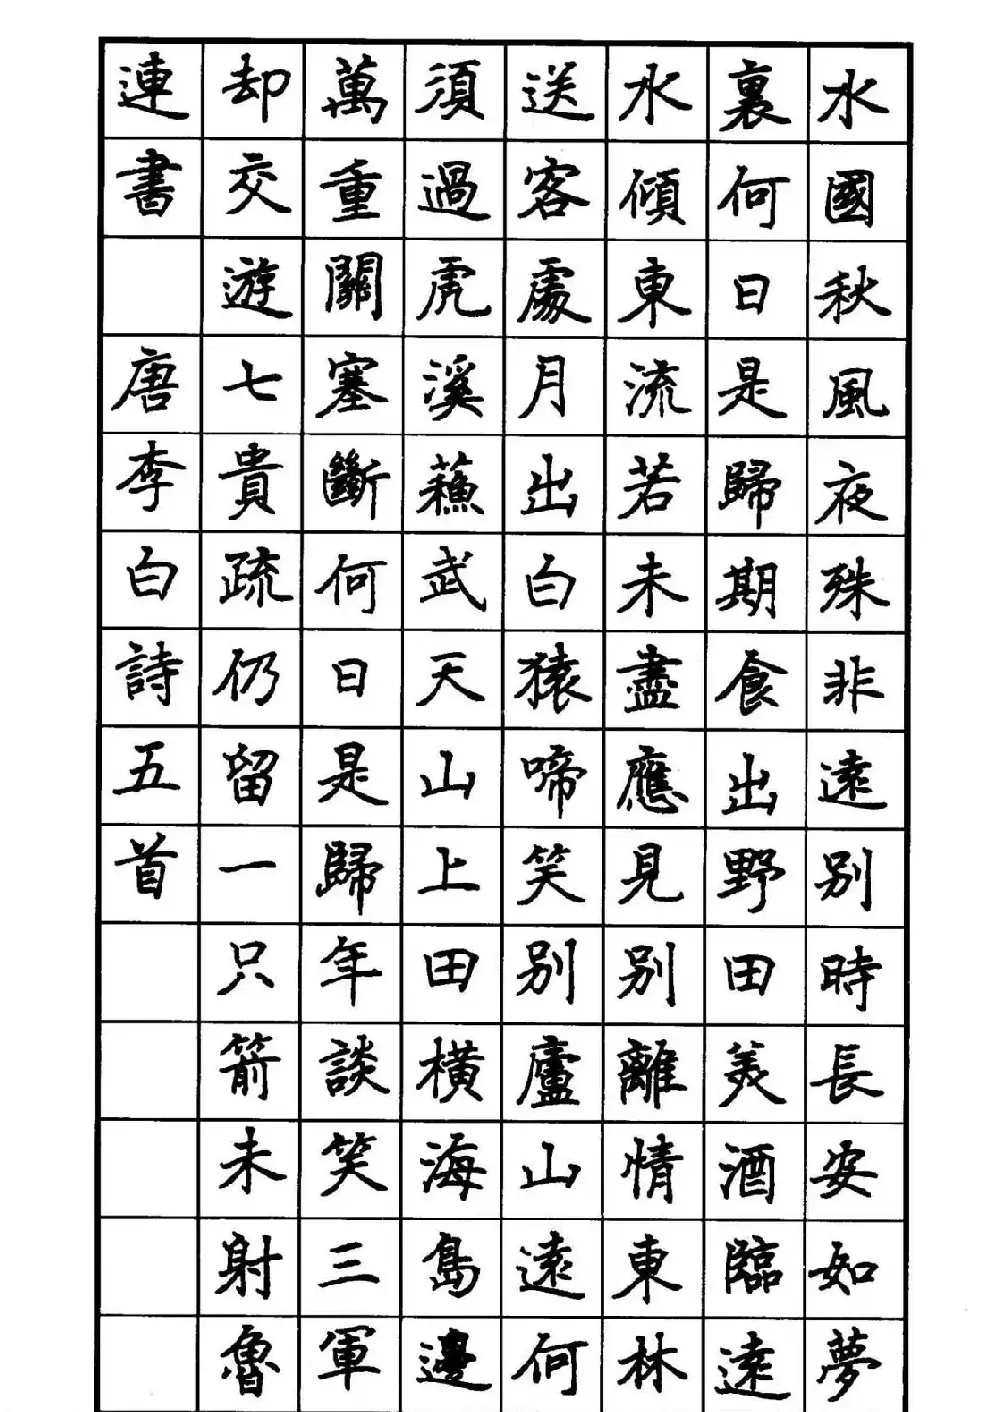 水國秋風夜殊非遠別時長安如夢
裏何日是歸期食出野田美酒臨遠
水傾東流若未盡應見別離情東林
送客處月出白猿啼笑別廬山遠何
須過虎溪蘓武天山上田橫海島邊
萬重關塞斷何日是歸年談笑三軍
却交遊七貴疏仍留一只箭未射魯
連書 唐李白詩五首